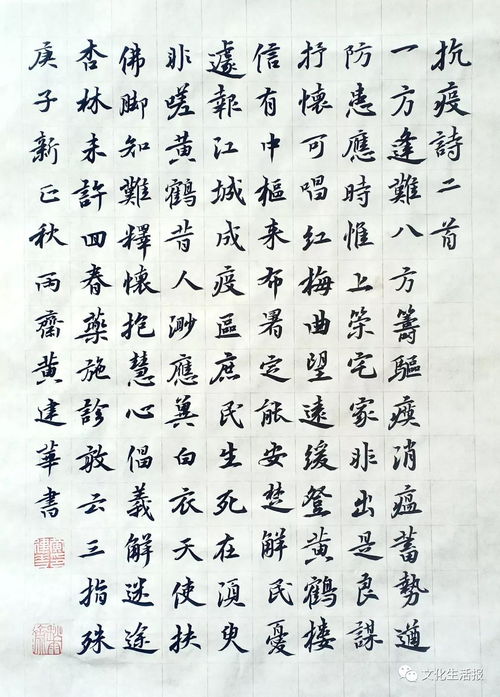 抗疫詩二首
一方逢難八方籌驅瘼消瘟蓄勢遒
防患應時惟上策宅家非出是良謀
抒懷可唱紅梅曲望遠緩登黃鶴樓
信有中樞來布署定能安楚解民憂
遽報江城成疫區庶民生死在須臾
非嗟黃鶴昔人渺應冀白衣天使扶
佛脚知難釋懷抱慧心倡義解迷途
杏林未許回春藥施診敢云三指殊
庚子新正秋雨齋黃建華書
文化生活报